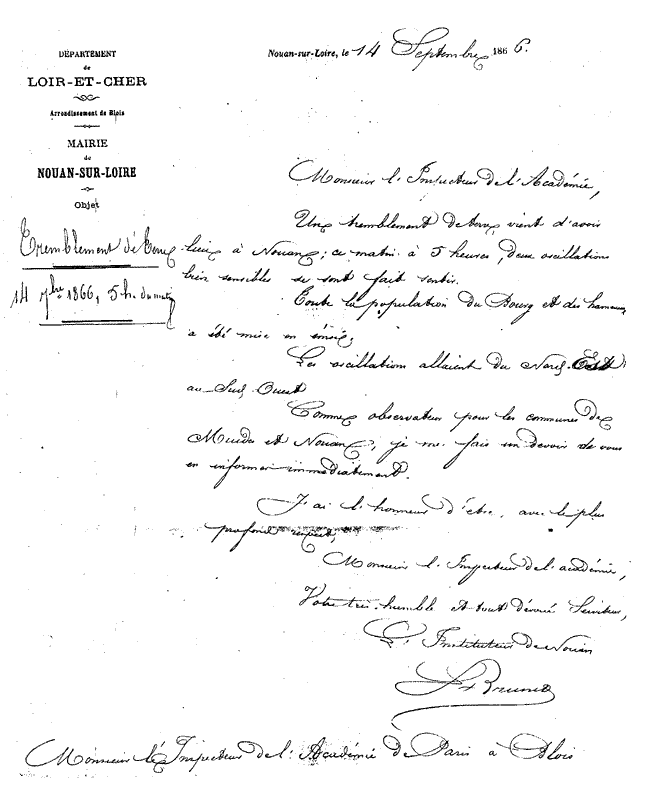 DÉPARTEMENT
de
LOIR-ET-CHER
Arrondissement de Blois
MAIRIE
de
NOUAN-SUR-LOIRE
Objet
Tremblement de terre
14 7bre 1866, 5 h. du matin
Nouan-sur-Loire, le 14 Septembre 1866.
Monsieur l'Inspecteur de l'Académie,
Un tremblement de terre vient d'avoir
lieu à Nouan; ce matin à 5 heures, deux oscillations
bien sensibles se sont fait sentir.
Toute la population du Bourg et des hameaux
a été mise en émoi.
Les oscillations allaient du Nord-Est
au Sud Ouest
Comme observateur pour les communes de
Muides et Nouan, je me fais un devoir de vous
en informer immédiatement.
J'ai l'honneur d'être, avec le plus
profond respect,
Monsieur l'Inspecteur de l'académie,
Votre très humble et tout dévoué Serviteur,
L'Instituteur de Nouan
Monsieur l'Inspecteur de l'Académie de Paris à Blois